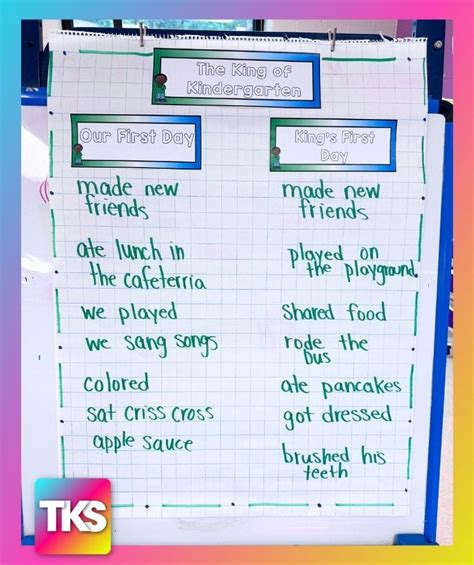 The King of
Kindergarten
Our First Day
made new
friends
ate lunch in
the cafeterria
we played
we sang songs
colored
sat criss cross
apple sauce
King's First
Day
made new
friends
played on
the playground.
shared food
rode the
bus
ate pancakes
got dressed
brushed his
teeth
TKS